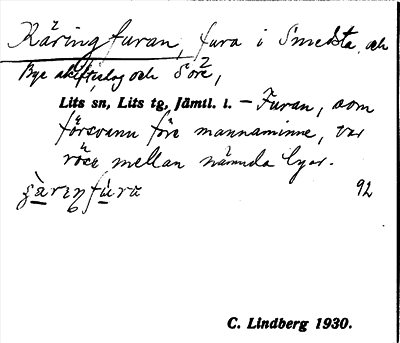 Käringfuran, fura i Smedsta, och
Bye skifteslag och Söre,
Lits sn, Lits tg, Jämtl. l. – Furan, som
försvann före mannaminne, var
röse mellan nämnda byar.
92
C. Lindberg 1930.